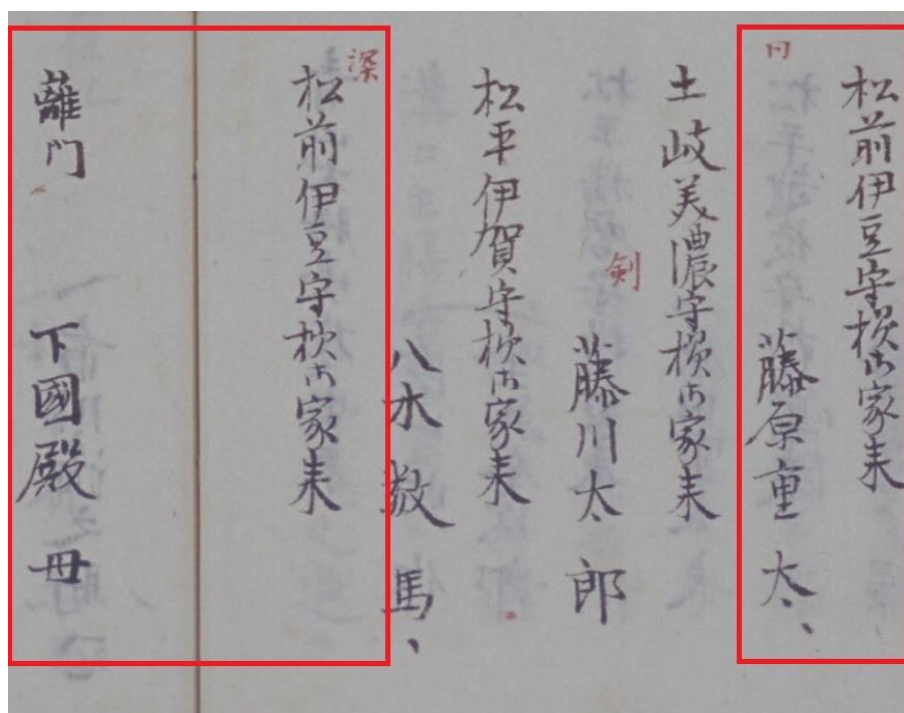 松前伊豆守様御家来
同
藤原重太、
土岐美濃守様御家来
剣
藤川太郎
松平伊賀守様御家来
八木数馬、
深
松前伊豆守様御家来
離門 下國殿母